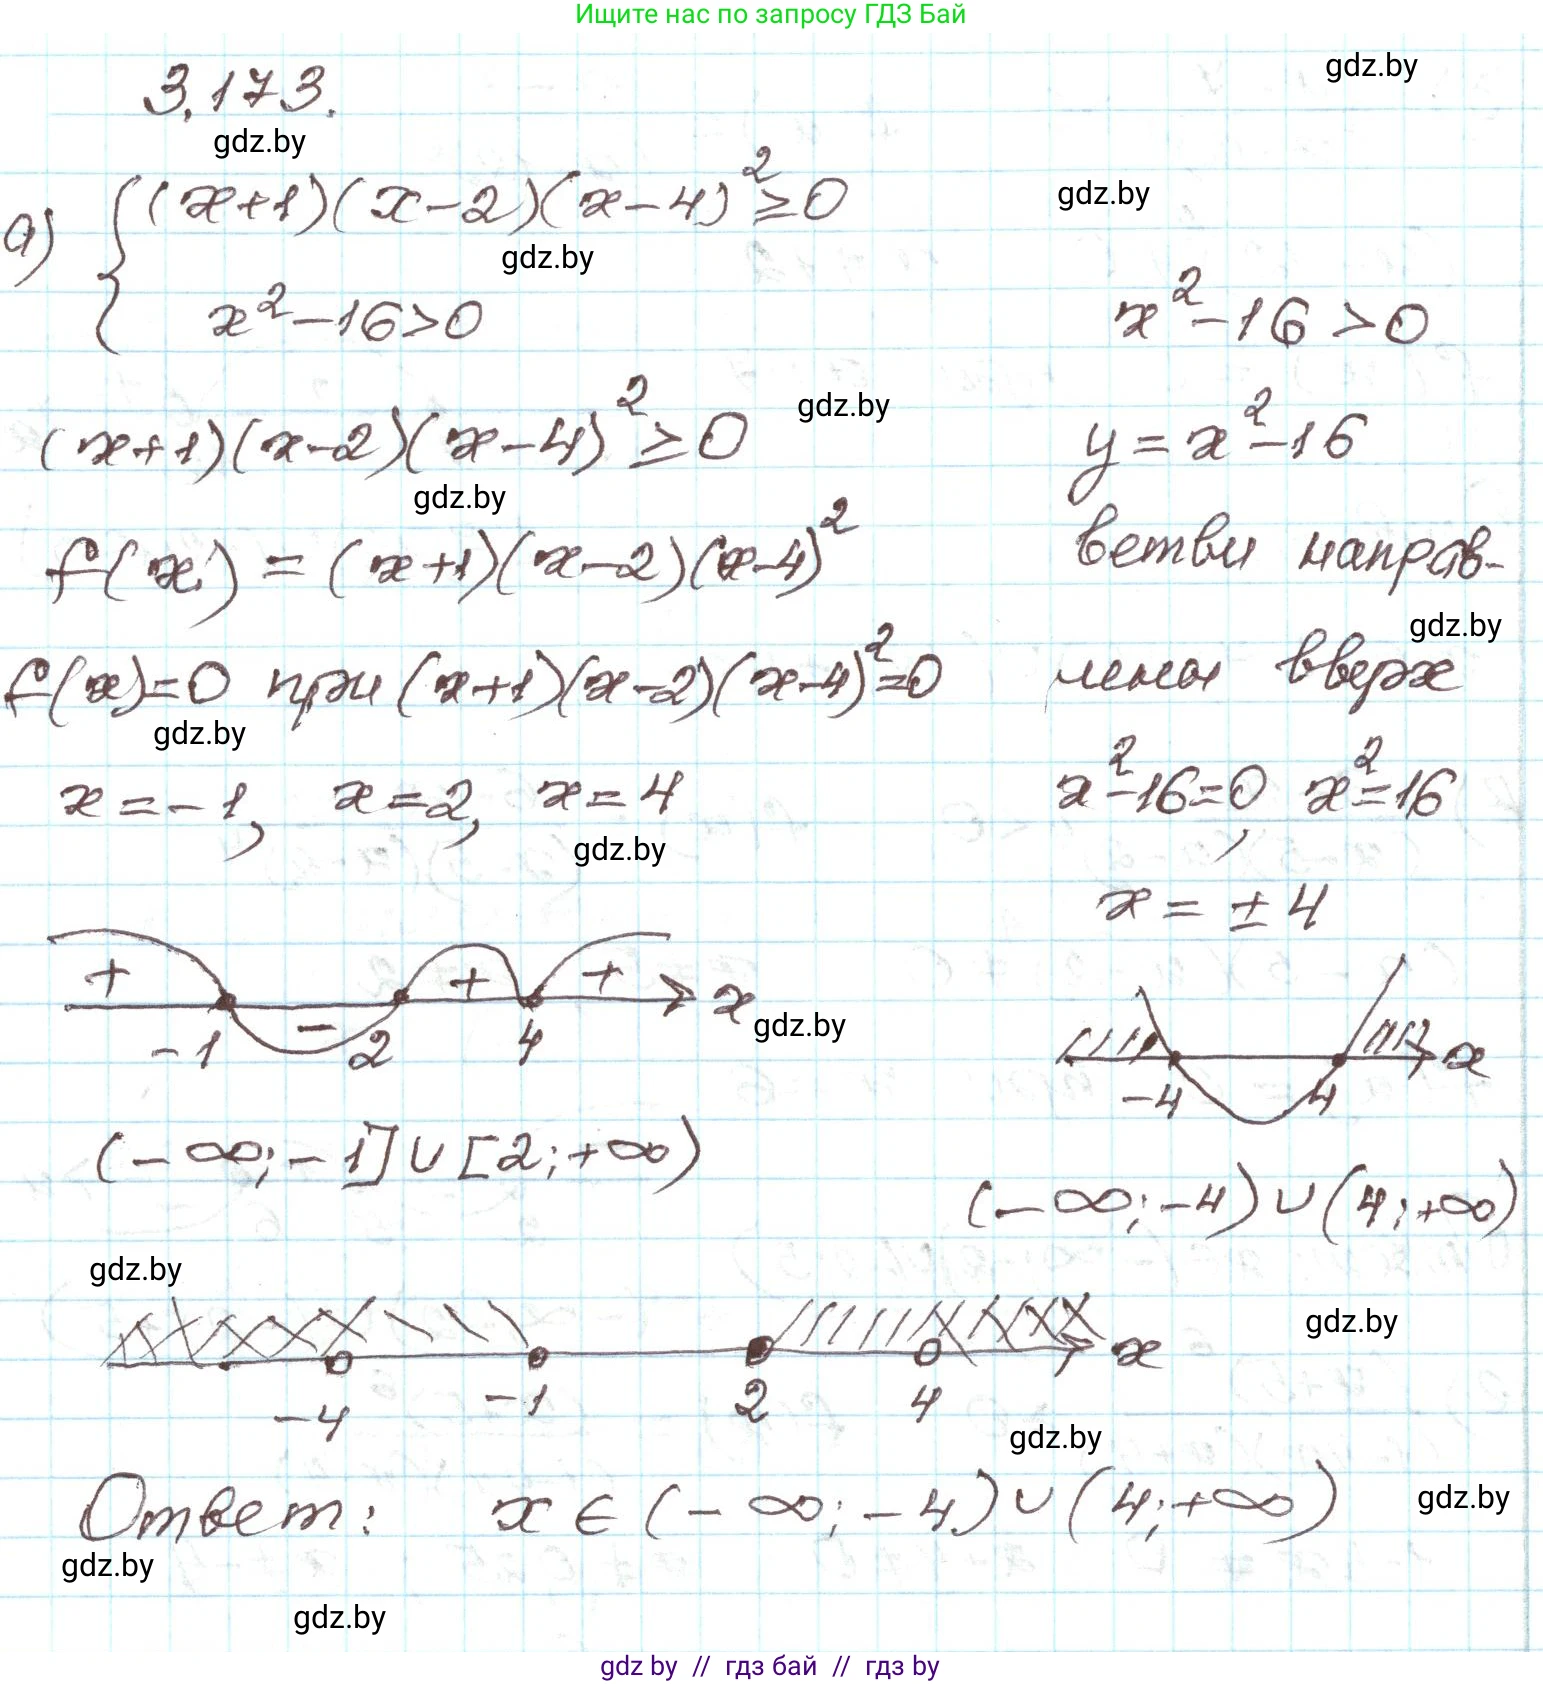 Ищите нас по запросу ГДЗ Бай
gdz.by
3.173.
gdz.by
а) { (x+1)(x-2)(x-4)² ≥ 0
gdz.by
gdz.by
x² - 16 > 0
(x+1)(x-2)(x-4)² ≥ 0
gdz.by
gdz.by
f(x) = (x+1)(x-2)(x-4)²
f(x)=0 при (x+1)(x-2)(x-4)²=0
gdz.by
x = -1, x = 2, x = 4
gdz.by
+ - + + x
gdz.by
-1 2 4
(-∞; -1] ∪ [2; +∞)
x² - 16 > 0
y = x² - 16
ветви направ-
gdz.by
лены вверх
x² - 16 = 0, x² = 16
x = ± 4
x
-4 4
(-∞; -4) ∪ (4; +∞)
gdz.by
gdz.by
x
-4 -1 2 4
gdz.by
Ответ: x ∈ (-∞; -4) ∪ (4; +∞)
gdz.by
gdz.by
gdz.by
gdz by // гдз бай // гдз by